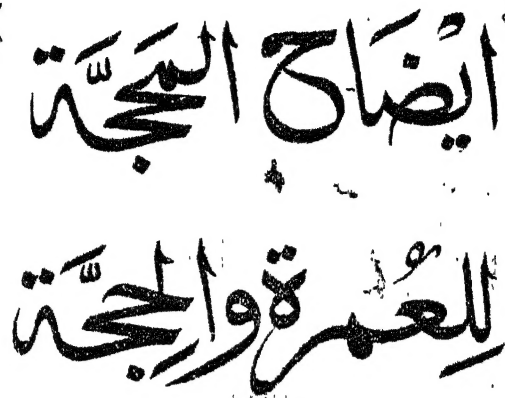 ايْضَاح المَحَجَّة
لِلعُمرة والحِجَّة